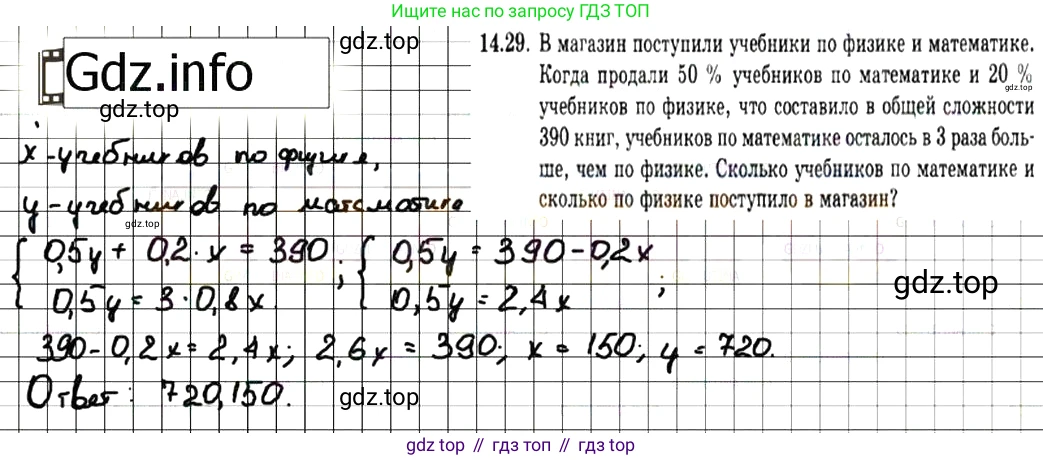 Ищите нас по запросу ГДЗ ТОП
gdz.top
Gdz.info
gdz.top
14.29. В магазин поступили учебники по физике и математике.
Когда продали 50 % учебников по математике и 20 %
gdz.top
учебников по физике, что составило в общей сложности
390 книг, учебников по математике осталось в 3 раза боль-
ше, чем по физике. Сколько учебников по математике и
сколько по физике поступило в магазин?
x - учебников по физике,
y - учебников по математике
gdz.top
0,5y + 0,2·x = 390 ; 0,5y = 390 - 0,2x
0,5y = 3·0,8x 0,5y = 2,4x ;
gdz.top
390 - 0,2x = 2,4x; 2,6x = 390; x = 150; y = 720.
Ответ: 720,150.
gdz.top
gdz top // гдз топ // gdz.top